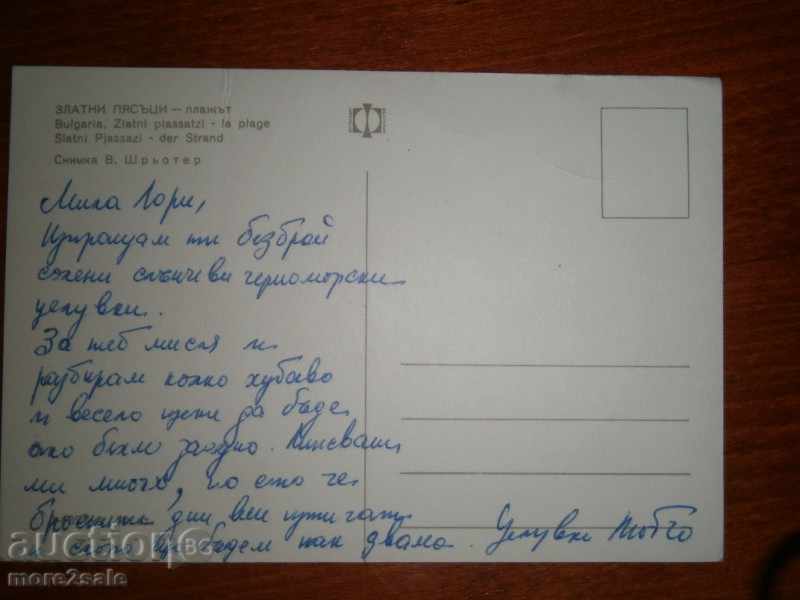 ЗЛАТНИ ПЯСЪЦИ — плажът
Bulgaria. Zlatni piassatzi - la plage
Slatni Pjassazi - der Strand
Снимка В. Шрьотер
Мила Лори,
Изпращам ти безброй
солени слънчеви черноморски
целувки.
За теб мисля и
разбирам колко хубаво
и весело щеше да бъде
ако бяхме заедно. Липсваш
ми много, но ето че
дни
и скоро ще бъдем пак двама. Целувки
auction
more2sale